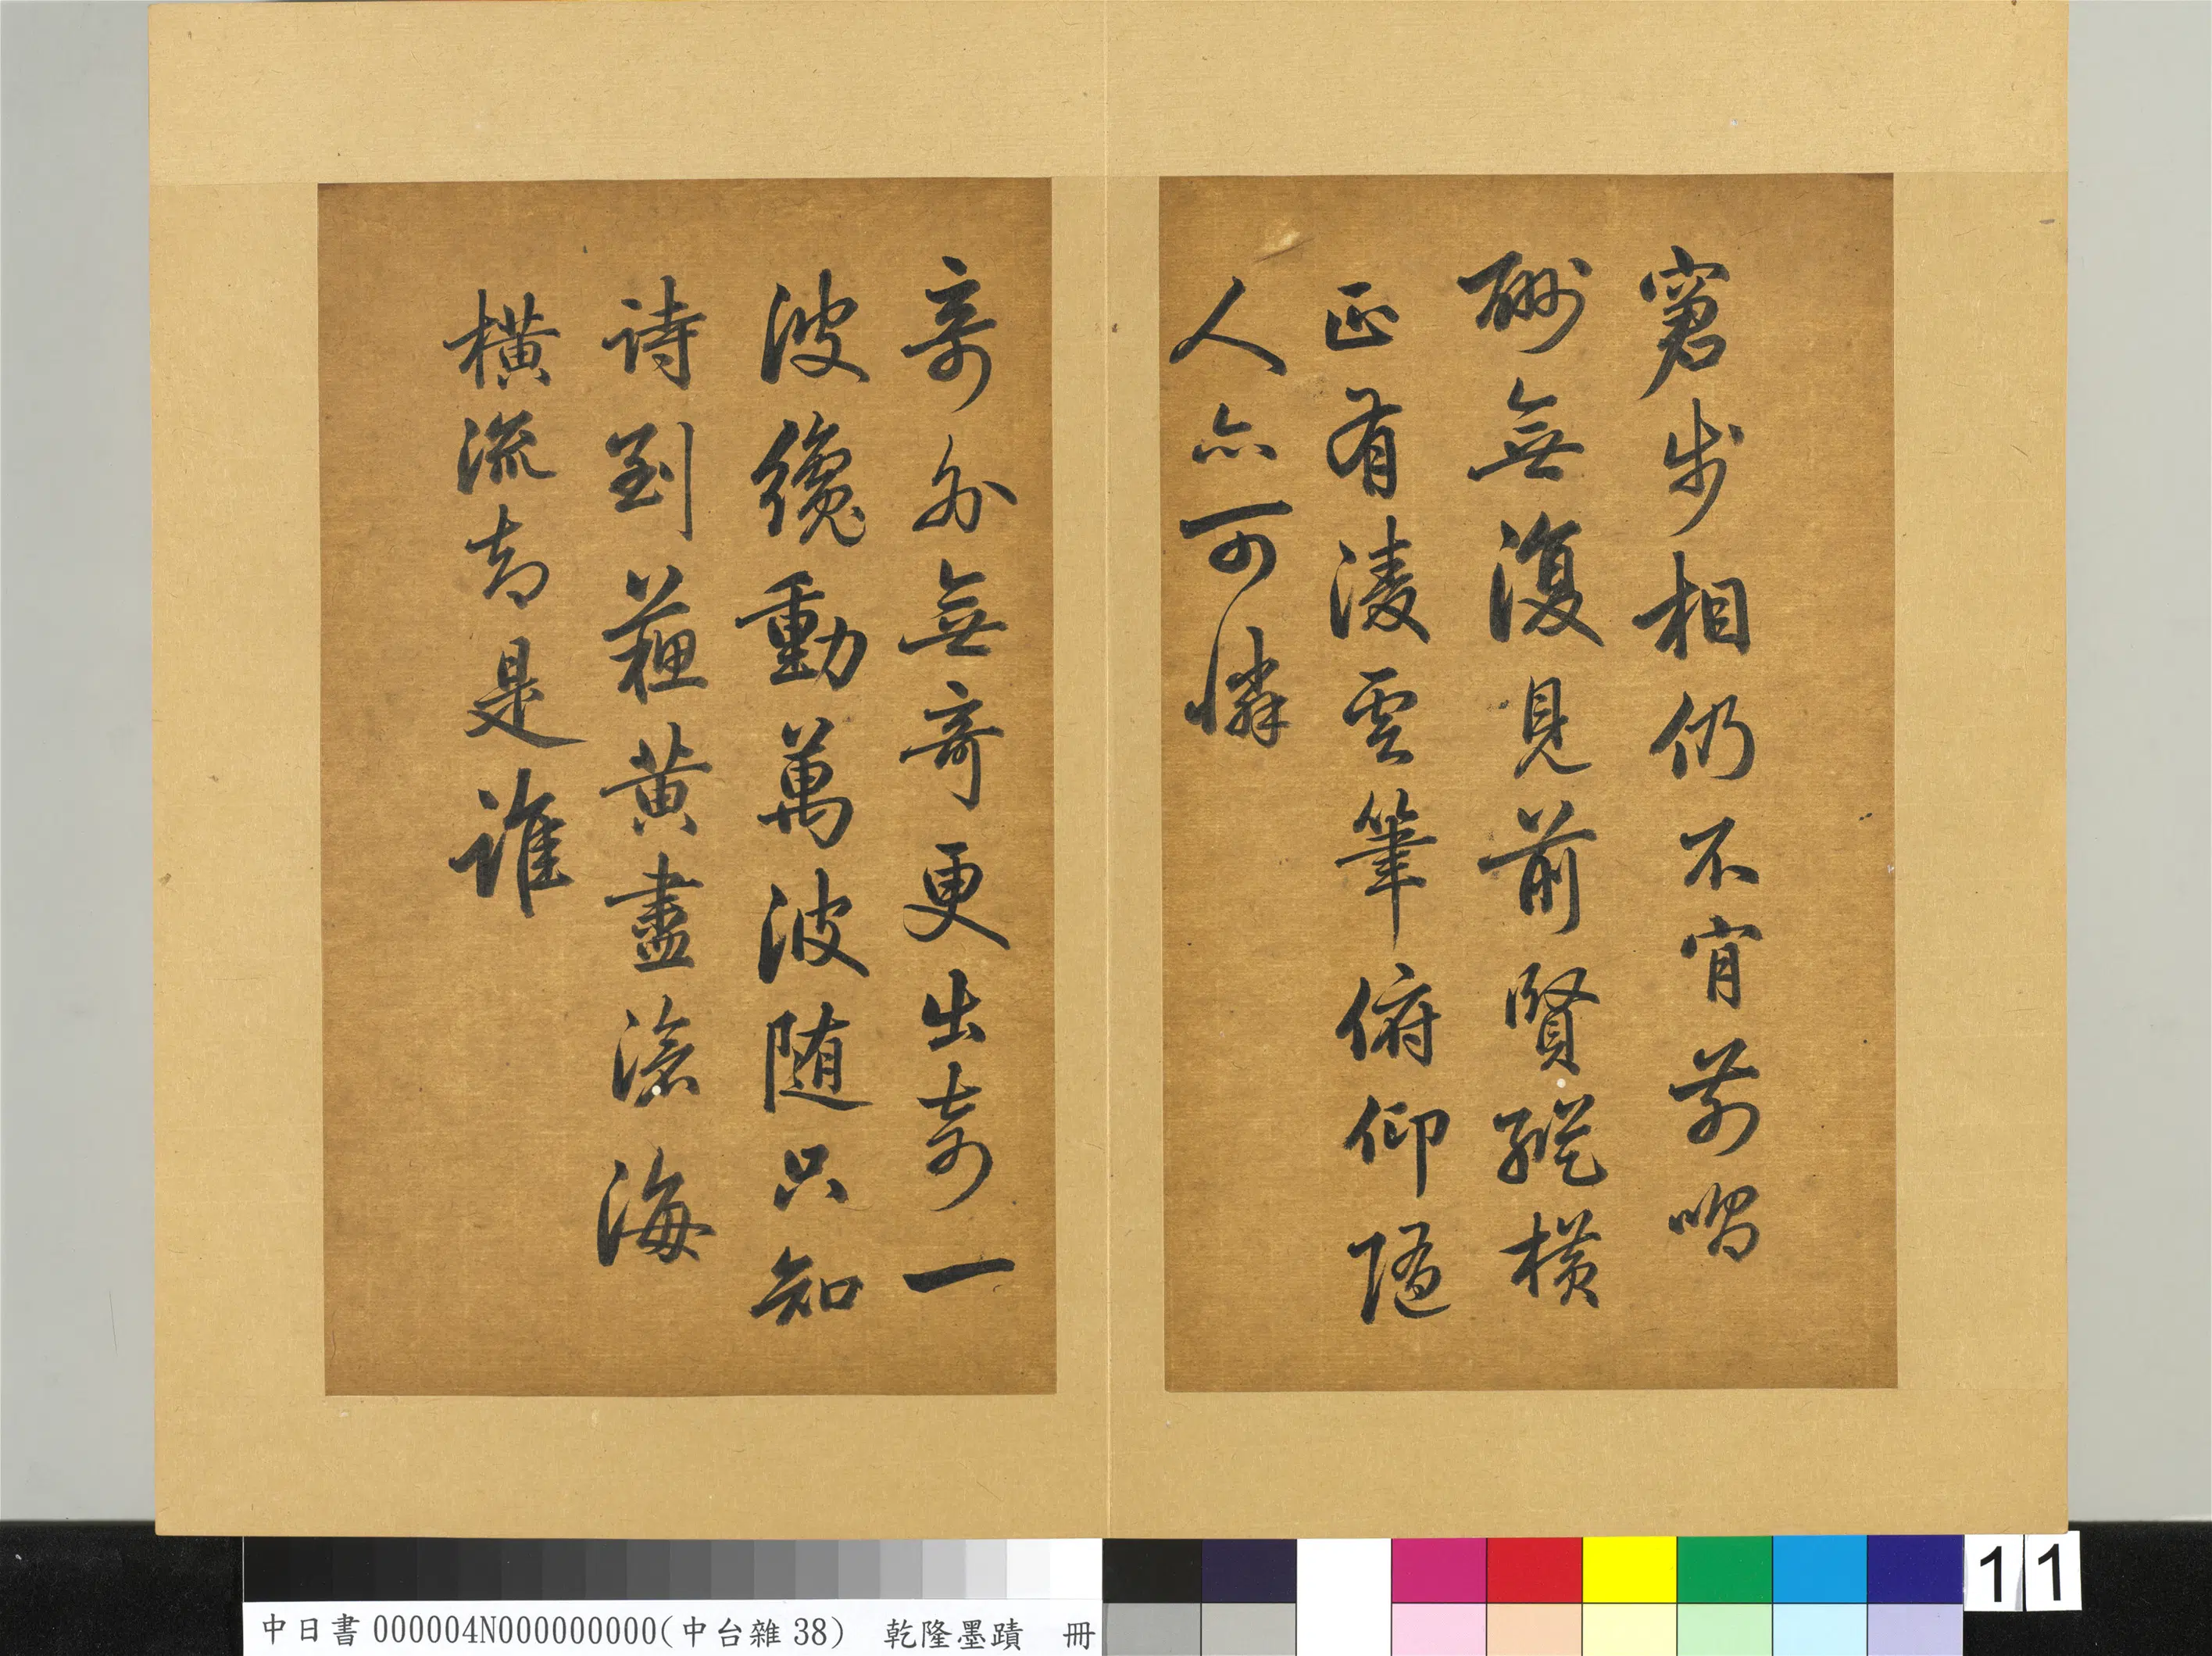 窘步相仍不肯前唱
酬無復見前賢縱橫
正有凌雲筆俯仰隨
人亦可憐
奇外無奇更出奇一
波纔動萬波随只知
詩到蘇黃盡滄海
橫流却是誰
中日書000004N000000000(中台雜38) 乾隆墨蹟 冊
11